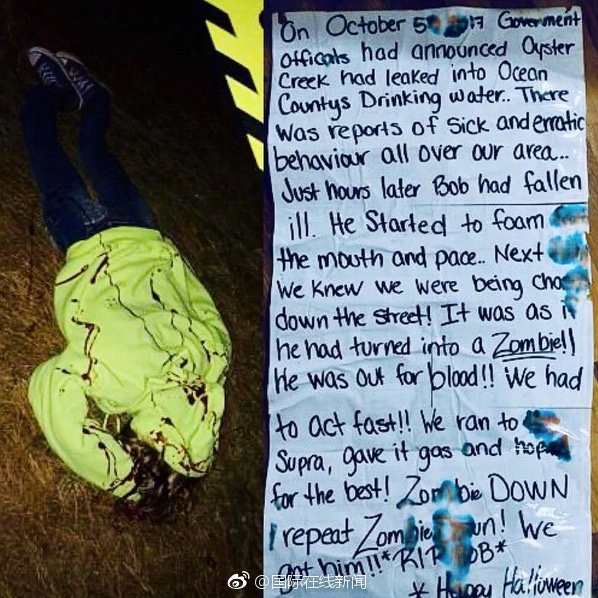 On October 5 17 Government
officals had announced Oyster
Creek had leaked into Ocean
Countys Drinking water.. There
was reports of sick and erratic
behaviour all over our area..
Just hours later Bob had fallen
ill. He Started to foam
the mouth and pace.. Next
We knew we were being cha
down the street! It was as i
he had turned into a Zombie!!
He was out for blood!! We had
to act fast!! We ran to
Supra, gave it gas and hope
for the best! Zombie DOWN
repeat Zombie un! We
got him!! *RIP BOB*
* Happy Halloween
@国际在线新闻